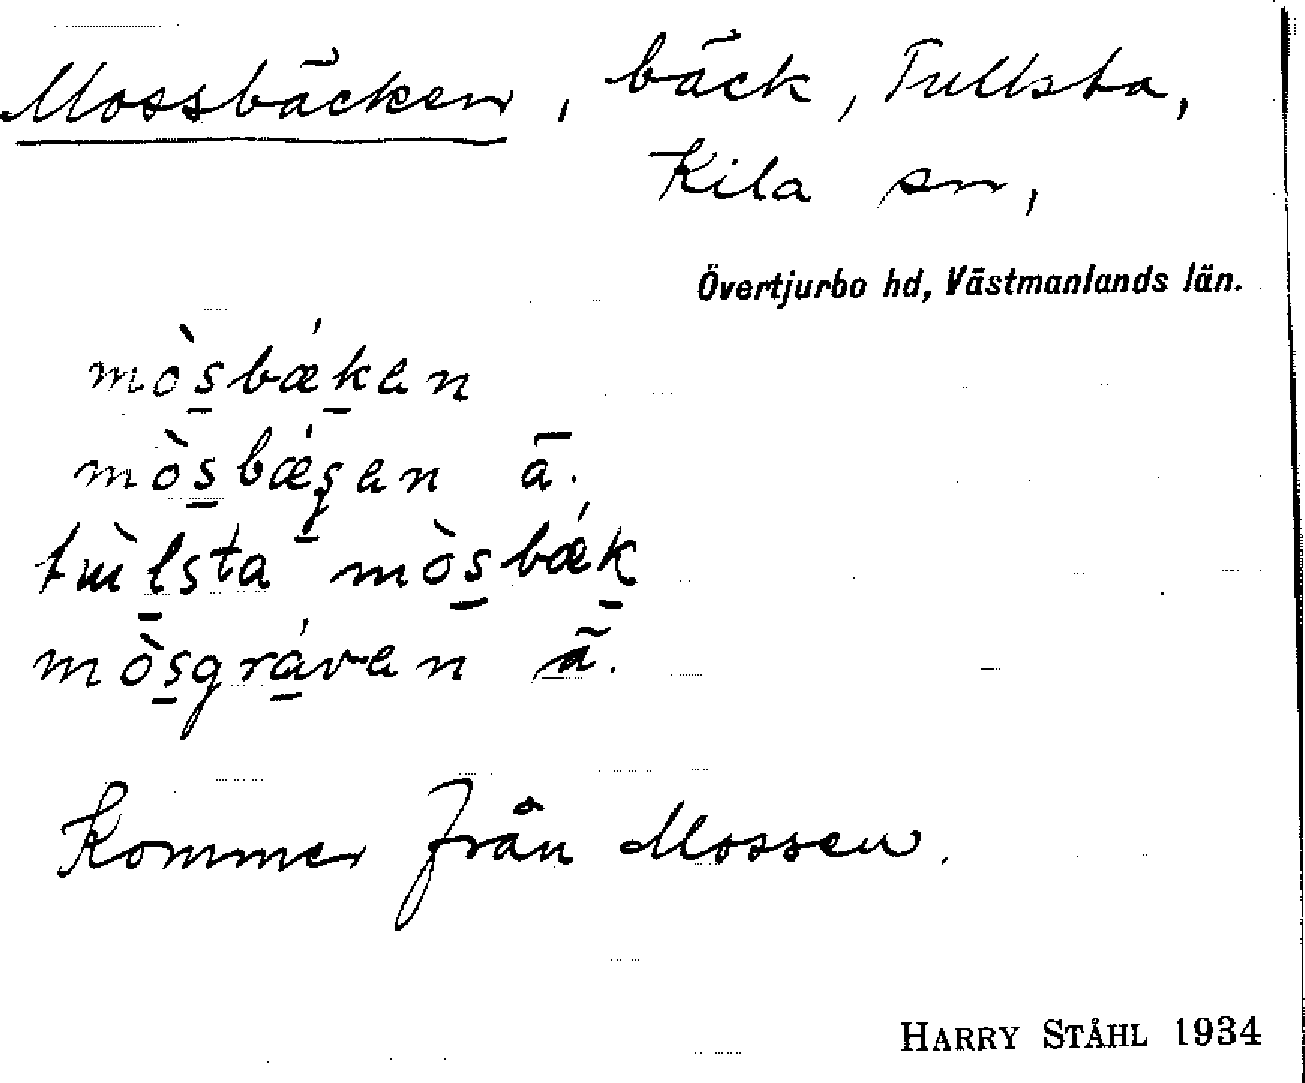 Mossbäcken, bäck, Tullsta,
Kila sn,
Övertjurbo hd, Västmanlands län.
mòs̱bǽḵen
mòs̱bǽgen ā.
tɯ̀ḻsta mòs̱bǽḵ
mòs̱grá̱ven ã.
Kommer från Mossen.
HARRY STÅHL 1934